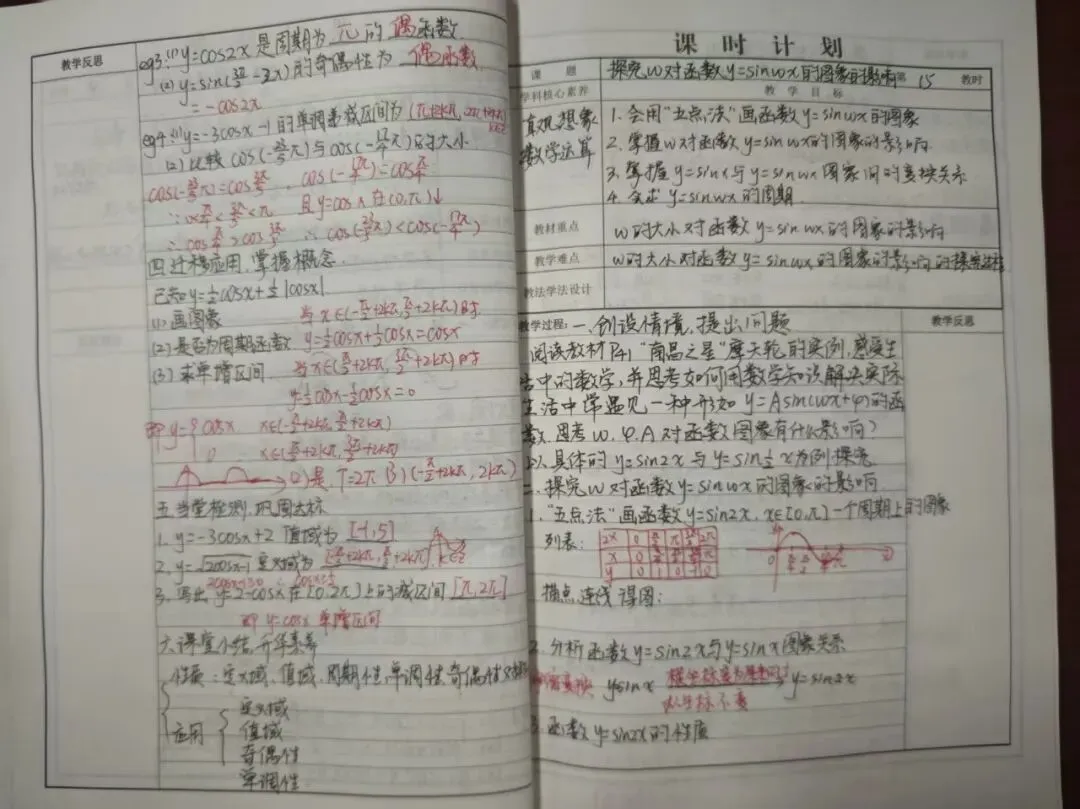 教学反思
eg3. (1) y=cos2x 是周期为 π 的 偶函数.
(2) y=sin(3π/2-2x) 的奇偶性为 偶函数
= -cos2x
eg4. (1) y=-3cosx-1 的单调递减区间为
(2) 比较 cos(-23/5π) 与 cos(-17/4π) 的大小
cos(-23/5π)=cos3π/5 , cos(-17/4π)=cosπ/4
∵ 0<π/4<3π/5<π 且 y=cosx 在(0,π)↓
∴ cosπ/4>cos3π/5 ∴ cos(-23/5π)<cos(-17π/4)
四.迁移应用,掌握概念.
已知 y=½cosx+½|cosx|
(1) 画图象 当 x∈(-π/2+2kπ, π/2+2kπ)时
(2) 是否为周期函数 y=½cosx+½cosx=cosx
(3) 求单增区间 当x∈(π/2+2kπ, 3π/2+2kπ)时
y=½cosx-½cosx=0
即 y={cosx x∈(-π/2+2kπ, π/2+2kπ)
0 x∈(π/2+2kπ, 3π/2+2kπ)
(2)是.T=2π (3)(-π/2+2kπ, 2kπ)
五.当堂检测,巩固达标
1. y=-3cosx+2 值域为 [-1,5]
2. y=√2cosx-1 定义域为 [-π/3+2kπ, π/3+2kπ] k∈Z
2cosx-1≥0 ∴cosx≥½
3. 写出 y=2-cosx 在[0,2π]上的减区间 [π,2π]
即 y=cosx 单增区间
六.课堂小结,升华素养
性质:定义域、值域、周期性,单调性,奇偶性
应用 {定义域
值域
奇偶性
单调性
课时计划
课 题 探究w对函数y=sinwx的图象的影响 第 15 教时
学科核心素养 教 学 目 标
直观想象
数学运算
1. 会用“五点法”画函数y=sinwx的图象
2. 掌握w对函数y=sinwx的图象的影响
3. 掌握y=sinx与y=sinwx图象间的变换关系
4. 会求y=sinwx的周期.
教材重点 w的大小对函数y=sinwx的图象的影响
教学难点 w的大小对函数y=sinwx的图象的影响的探究过程
教法学法设计
教学过程: 一、创设情境,提出问题 教学反思
阅读教材P41“南昌之星”摩天轮的实例,感受生
活中的数学,并思考如何用数学知识解决实际
生活中常遇见一种形如 y=Asin(wx+φ)的函
数.思考w.φ.A对函数图象有什么影响?
以具体的y=sin2x与y=sin½x为例探究.
二.探究w对函数y=sinwx的图象的影响
1.“五点法”画函数y=sin2x, x∈[0,π]一个周期上的图象
列表:
2x 0 π/2 π 3π/2 2π
x 0 π/4 π/2 3π/4 π
y 0 1 0 -1 0
描点,连线得图:
2. 分析函数y=sin2x与y=sinx图象关系
y=sinx 横坐标变为原来的1/2 y=sin2x
纵坐标不变
3. 函数y=sin2x的性质